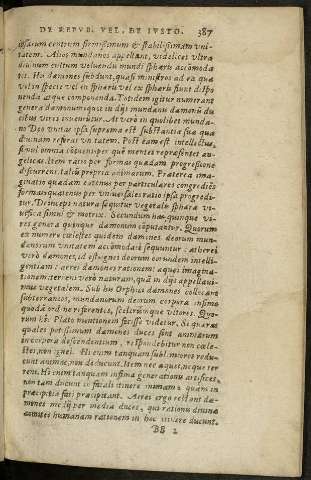 DE REPVB. VEL. DE IVSTO. 387
ipsarum centrum firmissimum & stabilissimam vni-
tatem. Alios mundanos appellant, videlicet vltra
diuinum cultum voluendu mundi sphæris accōmoda
tis. His dæmones subdunt, quasi ministros ad ea quæ
vel in specie vel in sphæris vel ex sphæris fiunt dispo
nenda atque componenda. Totidem igitur numerant
genera dæmonum quot in dijs mundanu dæmonū du
ctus vires inueniuntur. At verò in quolibet munda-
no Deo vnitas ipsa suprema est substantia sua qua
diuinam refarat vnitatem. Post eam est intellectus,
simul omnia concipiens per quē mentes repræsentet an-
gelicas. Item ratio per formas quadam progressione
discurrens, talcū propria animarum. Præterea imā-
ginatio quædam eatenus per particulares congrediēs
formas quatenus per vniuersales ratio ipsa progredi-
tur. Deinceps natura sequitur vegetalis sphæræ vi-
uifica simul & motrix. Secundum has quinque vi-
res genera quinque dæmonum computantur. Quorum
ex numero cælestes quidem dæmones deorum mun-
danorum vnitatem accōmodatè sequuntur: ætherei
verò dæmones, id est ignei deorum eorundem intelli-
gentiam: aerei dæmones rationem: aquei imagina-
tionem: terreni verò naturam, quā in dijs appellaui-
mus vegetalem. Sub his Orphici dæmones collocant
subterraneos, mundanorum deorum corpora infimo
quodā ordine referentis, scelerūm que vltores. Quo-
rum hîc Plato mentionem fecisse videtur. Si quæras
quales potissimum dæmones duces sint animarum
in corpora descendentium, respondebitur non cæle-
stes, non ignei. Hi enim tanquam subl.miores redu-
cunt animas, non deducunt. Item nec aquei, neque ter
reni. Hi enim tanquam infima generationis artifices,
non tam ducunt ex fatali itinere animam, quam in
præcipitia fati præcipitant. Aerei ergo restant dæ-
mones medij per media duces, qui rationi diuinæ
comites humanam rationem in hoc itinere ducunt.
BB 2